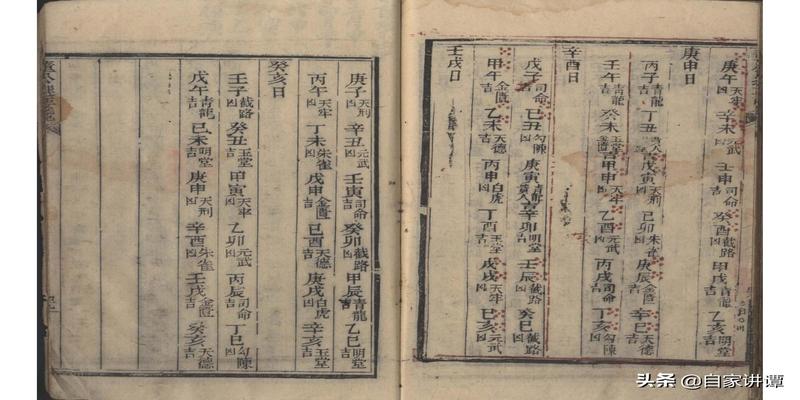 庚午天牢凶辛未元武凶壬申司命吉癸酉截路凶甲戌青龍吉乙亥明堂吉
庚申日
丙子青龍吉丁丑貴人吉戊寅天刑凶己卯朱雀凶庚辰金匱吉辛巳天德吉
壬午截路凶癸未玉堂吉甲申天牢凶乙酉元武凶丙戌司命吉丁亥勾陳凶
辛酉日
戊子司命吉己丑勾陳凶庚寅青龍貴人吉辛卯明堂吉壬辰截路凶癸巳截路凶
甲午金匱吉乙未天德吉丙申白虎凶丁酉玉堂吉戊戌天牢凶己亥元武凶
壬戌日
庚子天刑凶辛丑元武凶壬寅司命吉癸卯截路凶甲辰青龍吉乙巳明堂吉
丙午天牢凶丁未朱雀凶戊申金匱吉己酉天德吉庚戌白虎凶辛亥玉堂吉
癸亥日
壬子截路凶癸丑玉堂吉甲寅天牢凶乙卯元武凶丙辰司命吉丁巳勾陳凶
戊午青龍吉己未明堂吉庚申天刑凶辛酉朱雀凶壬戌金匱吉癸亥天德吉
头条 @自家讲谭